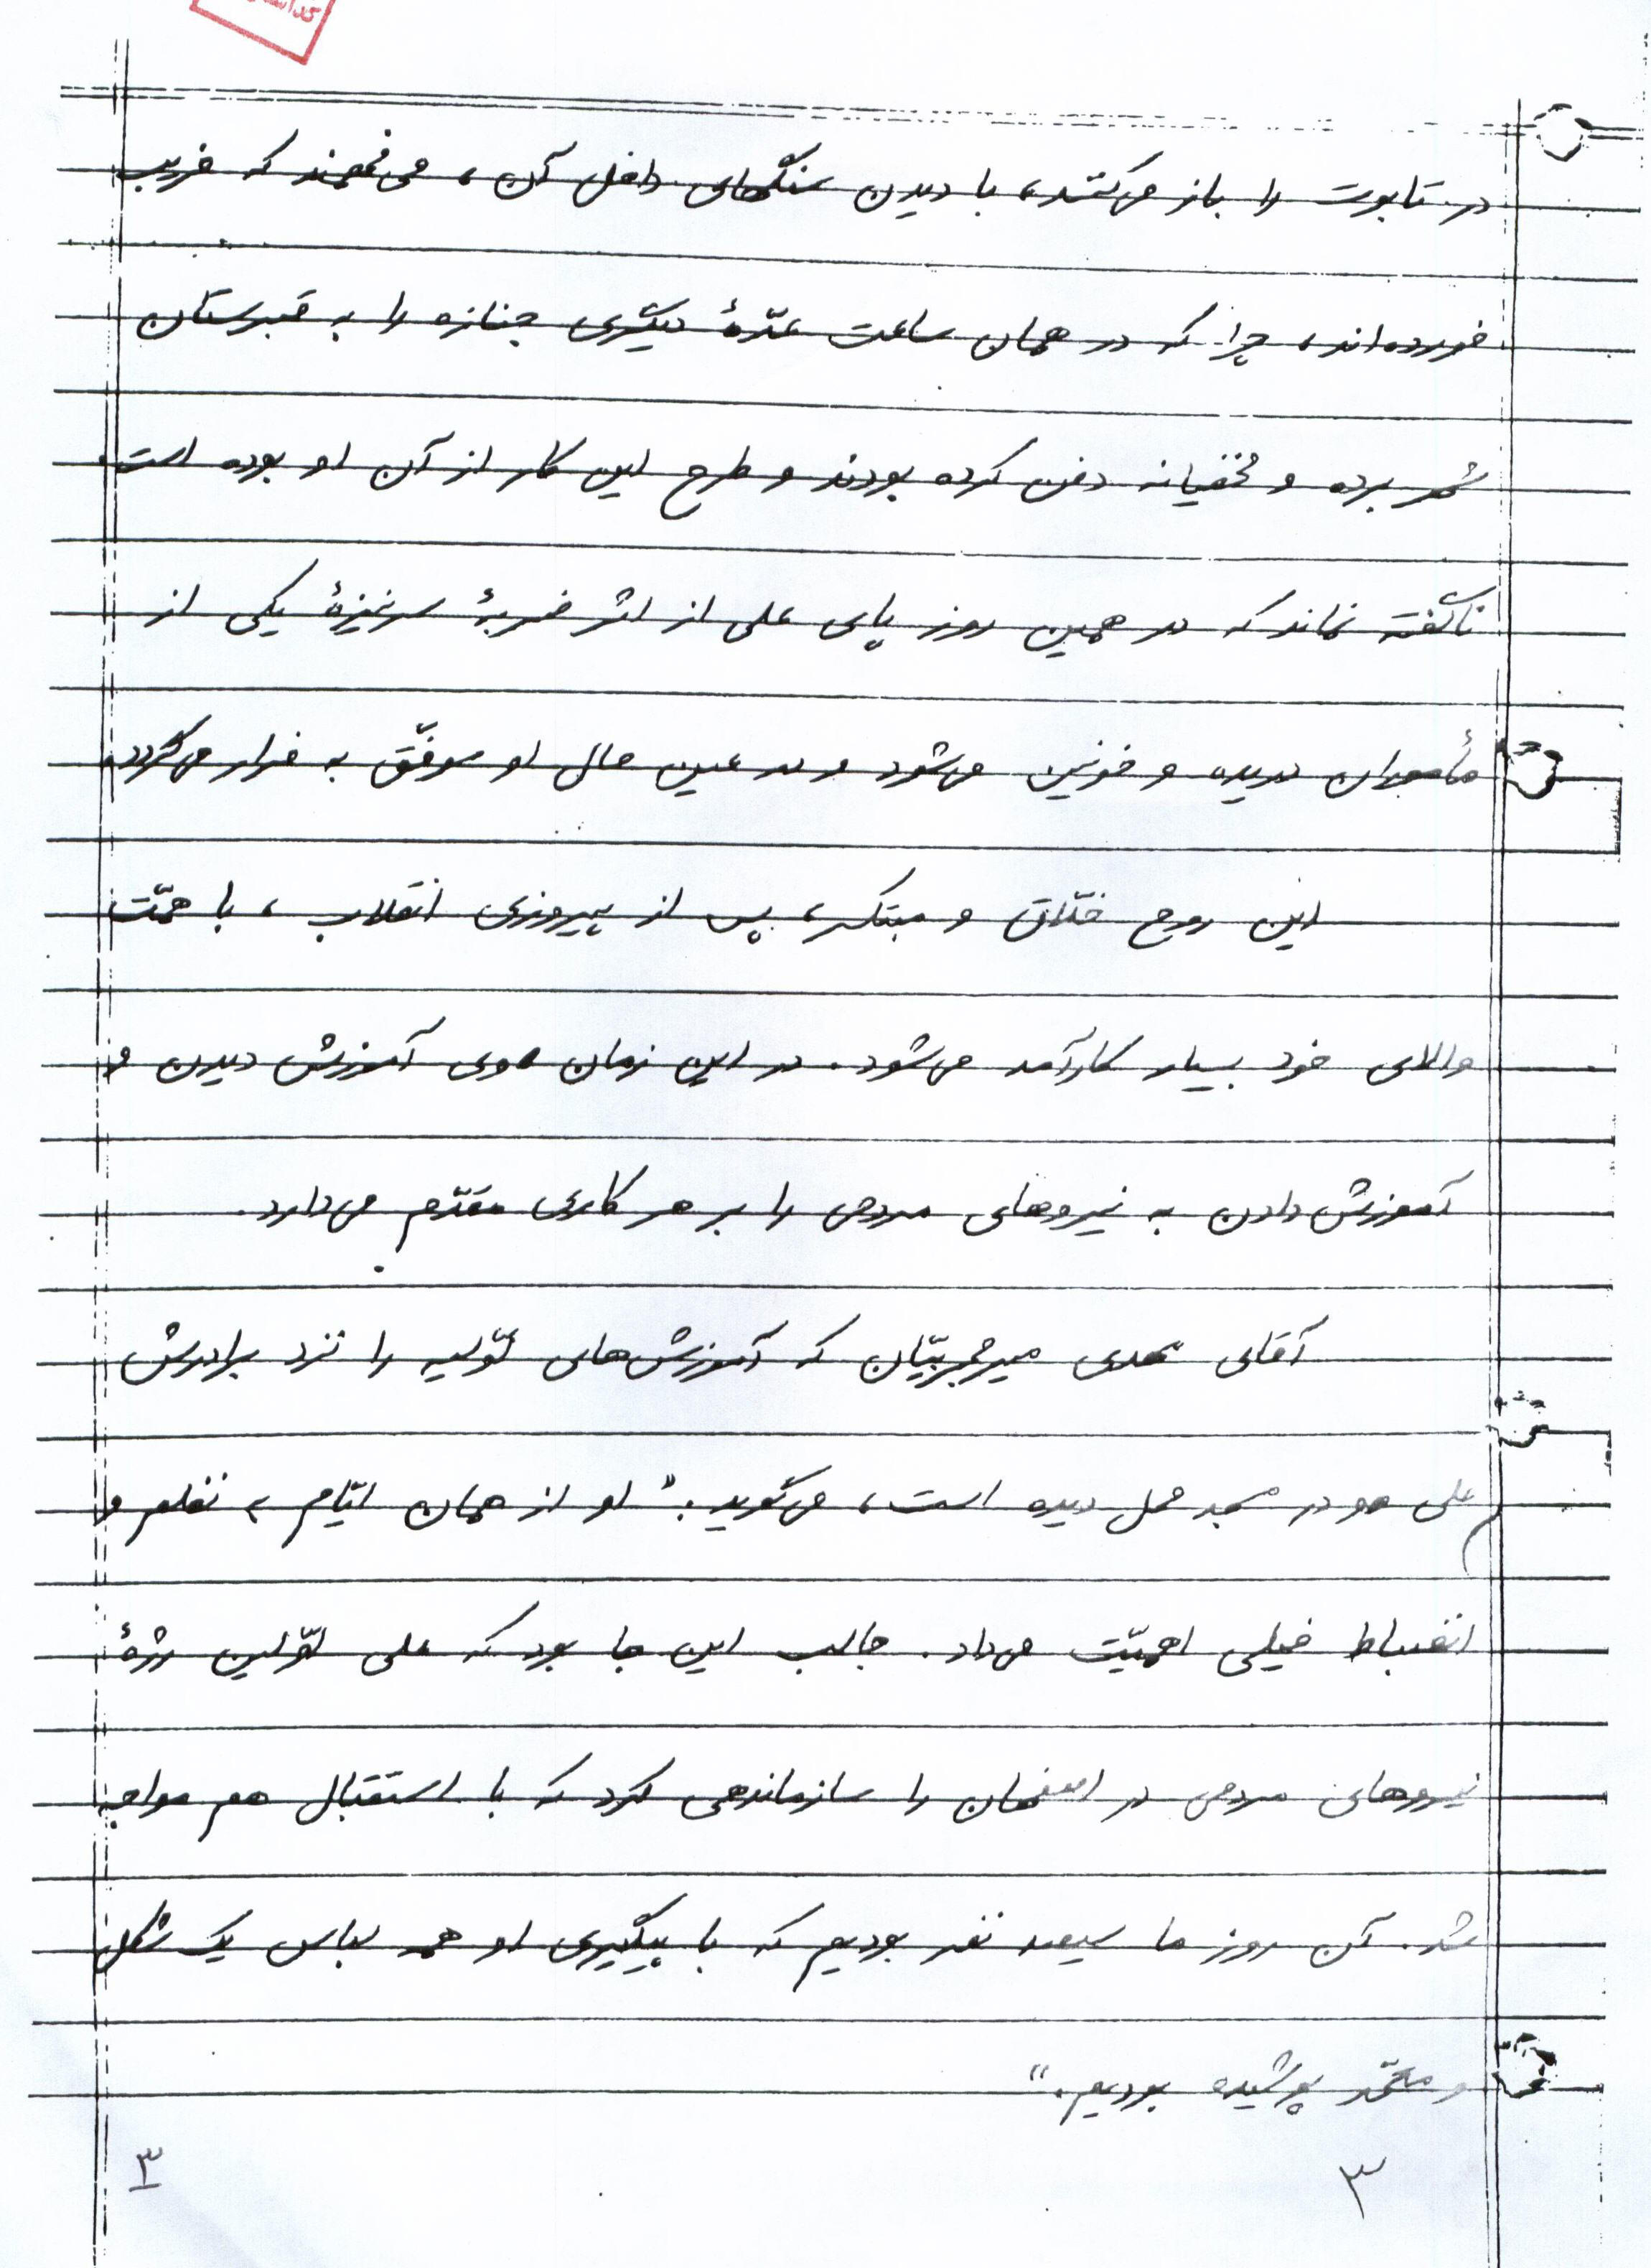 در تابوت را باز می‌کنند، با دیدن سنگهای داخل آن، می‌فهمند که فریب
خورده‌اند، چرا که در همان ساعت عدّهٔ دیگری جنازه را به قبرستان
شهر برده و مخفیانه دفن کرده بودند و طرح این کار از آن او بوده است.
ناگفته نماند که در همین روز پای علی از اثر ضربهٔ سرنیزهٔ یکی از
مأموران دریده و خونین می‌شود و در عین حال او موفّق به فرار می‌گردد.
این روح خلّاق و مبتکر، پس از پیروزی انقلاب، با همّت
والای خود بسیار کارآمد می‌شود. در این زمان وی آموزش دیدن و
آموزش دادن به نیروهای مردمی را بر هر کاری مقدّم می‌دارد.
آقای مهدی که آموزش‌های اوّلیه را نزد برادرش
علی در مسجد محل دیده است، می‌گوید: "او از همان ایّام، نظم و
انضباط خیلی اهمیّت می‌داد. جالب این جا بود که علی اوّلین رژهٔ
نیروهای مردمی در اصفهان را سازماندهی کرد که با استقبال هم مواجه
شد. آن روز ما سیصد نفر بودیم که با پیگیری او همه لباس یک شکل
و متّحد پوشیده بودیم."
۳
۳